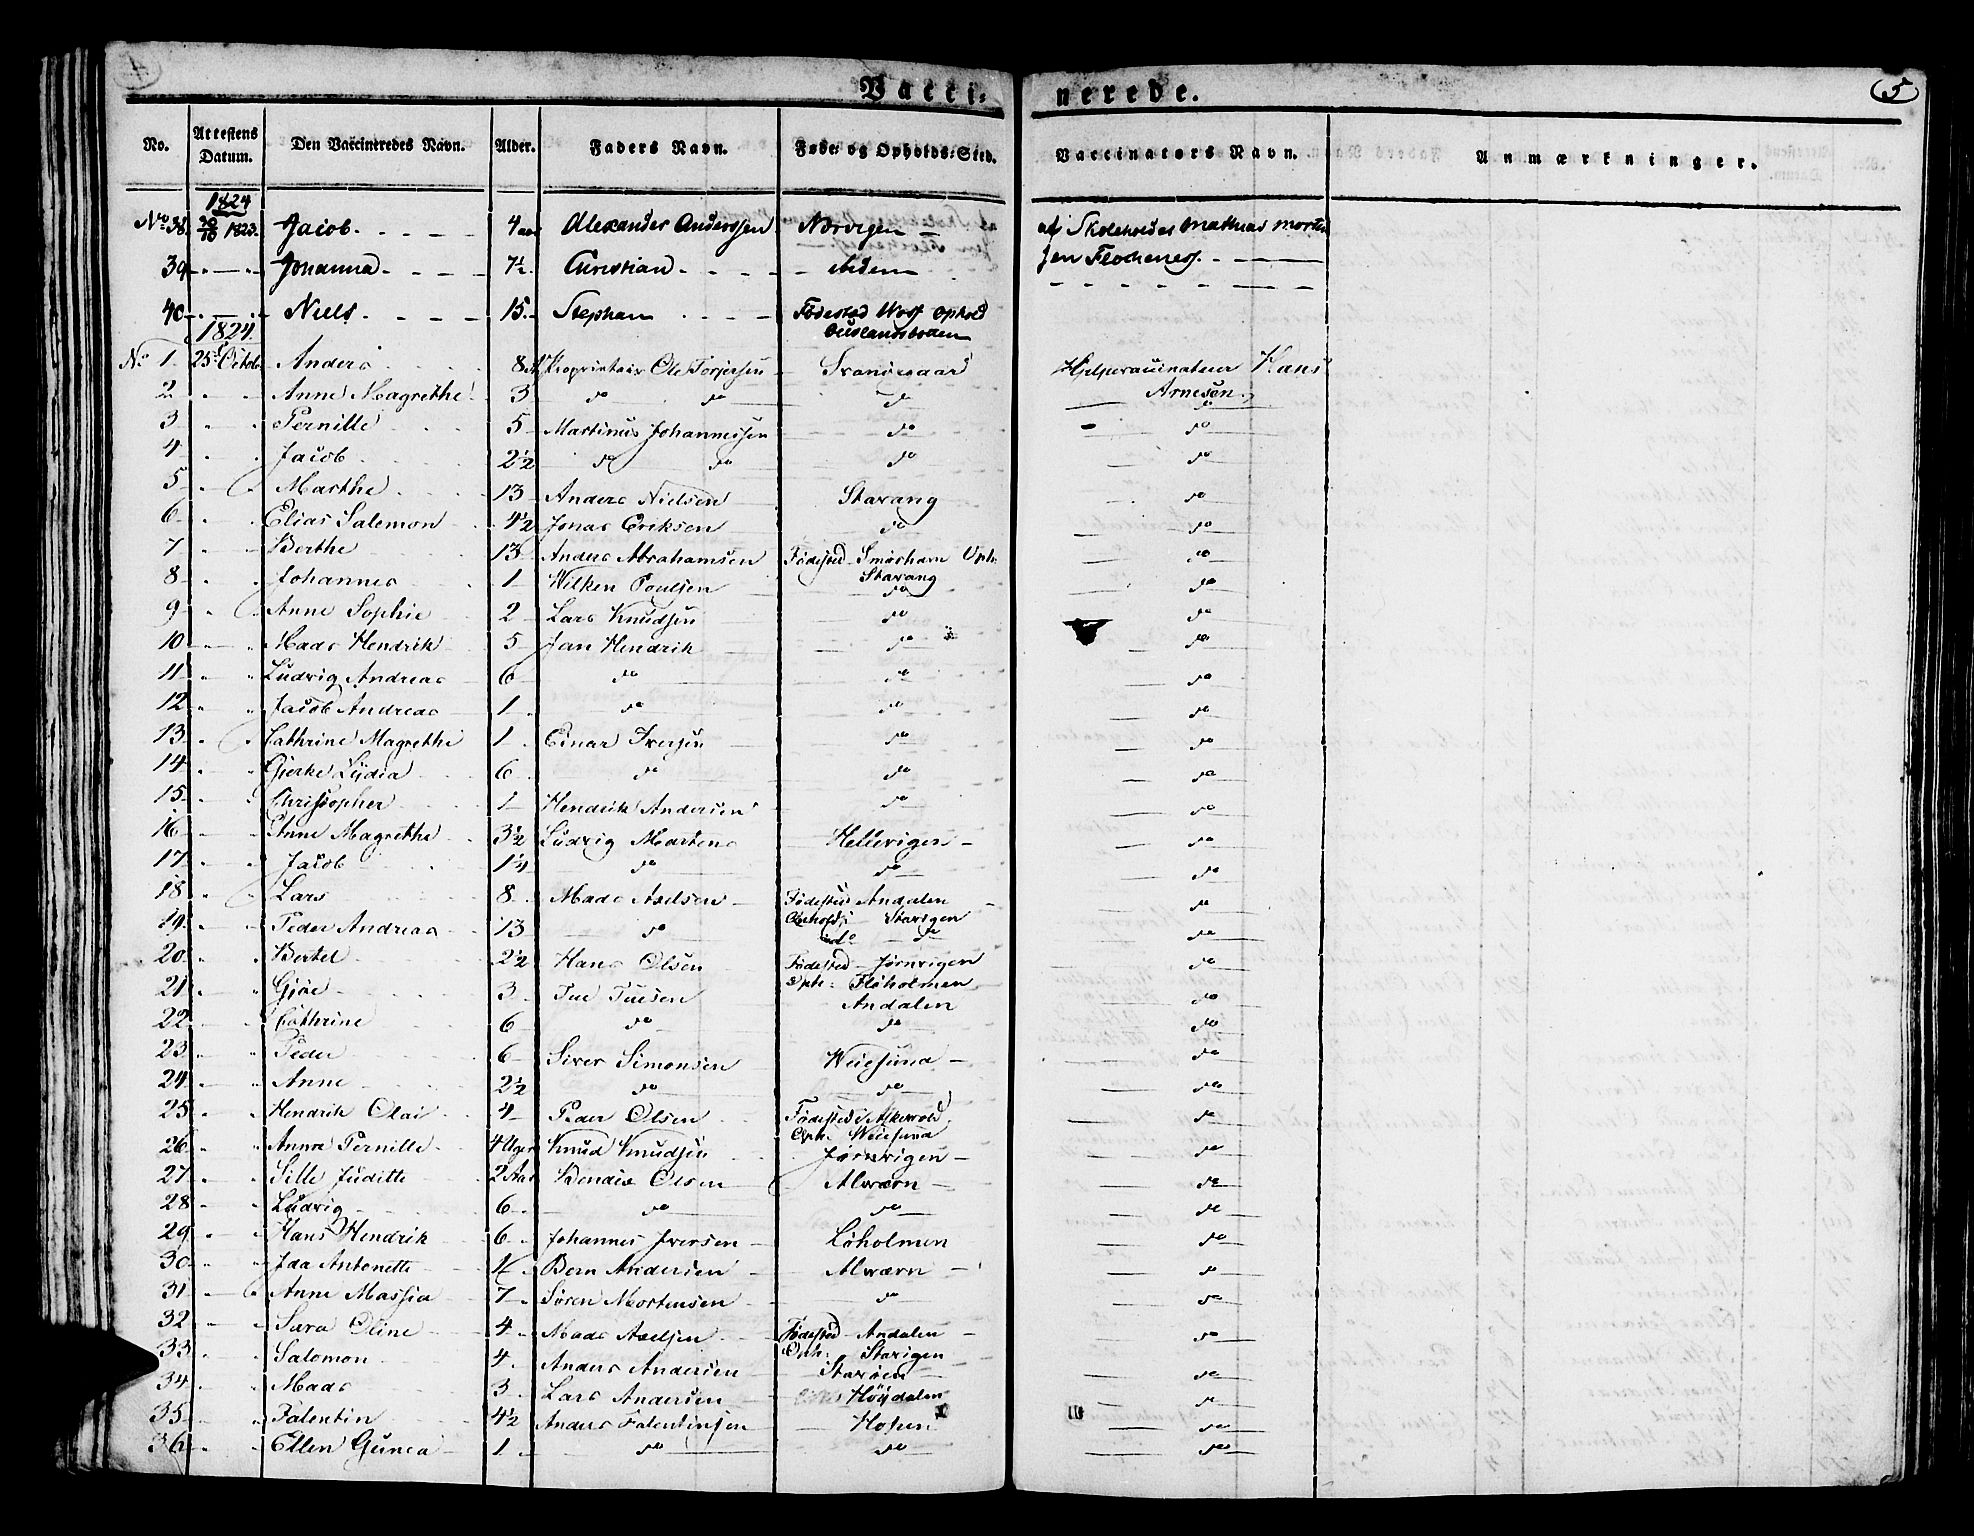 4
Vacci-nerede.
5
No. Attestens Datum. Den Vaccineredes Navn. Alder. Faders Navn. Føde- og Opholds-Sted. Vaccinators Navn. Anmærkninger.
1824
No 38. 1823. Jacob 4 Alexander Anderssen Norvigen af Skoleholder Mathias Morten
39 Johanna 7½ Christian ibidem sen Flochenes
40 Niels 15 Stephan Fødested Ophold
1824
No 1. 25 Octob Anders 8 Proprietair Ole Torjersen Svanøegaard Hjelpevaccinateur Hans
2 Anne Magrethe 3 do do do Arnesen
3 Pernille 5 Martinus Johannessen do do
4 Jacob 2½ do do do do
5 Marthe 13 Anders Nielsen Stavang do
6 Elias Salemon 4½ Jonas Eriksen do do
7 Berthe 13 Anders Abrahamsen Fødested Smørhavn Oph. do
Stavang
8 Johannes 1 Wilken Poulsen do do
9 Anne Sophie 2 Lars Knudsen do do
10 Mads Hendrik 5 Jan Hendrik do do
11 Ludvig Andreas 6 do do do
12 Jacob Andreas 1 do do do
13 Cathrine Magrethe 1 Einar Iversen do do
14 Gjerke Lydia 6 do do do
15 Christopher 1 Hendrik Andersen do do
16 Anne Magrethe 3½ Ludvig Martens Hellevigen do
17 Jacob 1¼ do do do
18 Lars 8 Mads Axelsen Fødested Andalen do
Ophold: Stavigen
19 Peder Andreas 13 do do do do
20 Bertel 2½ Hans Olsen Fødested Jørnvigen do
Oph: Fløholmen
21 Gjøe 3 Tue Tuesen Andalen do
22 Cathrine 6 do do do
23 Peder 6 Siver Simonsen Weiesund do
24 Anne 2½ do do do
25 Hendrik Olai 4 Peder Olsen Fødested Alkevold do
Oph. Weiesund
26 Anna Pernille 4 Uger Knud Knudsen Jørnvigen do
27 Sille Juditte 2 Aar Bendix Olsen Alværn do
28 Ludvig 6 do do do
29 Hans Hendrik 6 Johannes Iversen Løholmen do
30 Ida Antonette Bern Andersen Alværn do
31 Anne Massia 7 Søren Mortensen do do
32 Sara Oline 4 Mads Axelsen Fødested Andalen do
Oph: Stavigen
33 Salomon 4 Anders Andersen Stavøen do
34 Mads 3 Lars Andersen Høydalen do
35 Falentin 4½ Anders Falentinsen Hosen do
36 Ellen Gunea 1 do do do